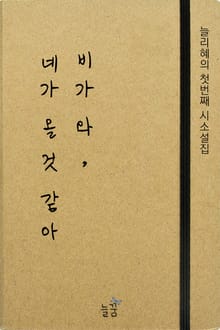 늘리혜의 첫번째 시소설집
비가 와,
네가 올 것 같아
늘꿈